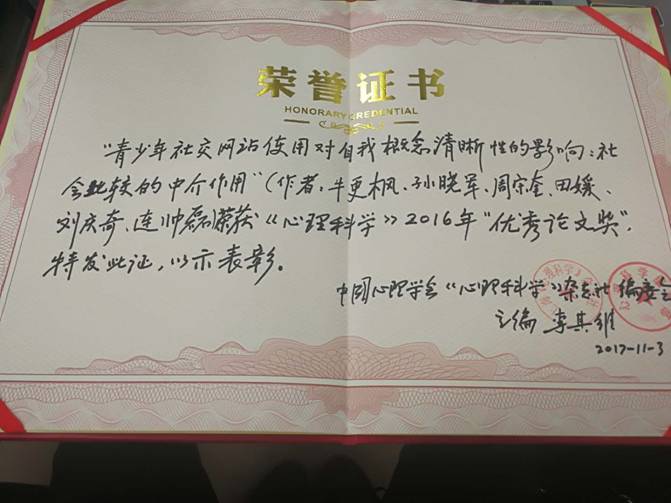 荣誉证书
HONORARY CREDENTIAL
“青少年社交网站使用对自我概念清晰性的影响:社
会比较的中介作用”(作者:牛更枫、孙晓军、周宗奎、田媛、
刘庆奇、连帅磊)荣获《心理科学》2016年“优秀论文奖”,
特发此证,以示表彰。
中国心理学会《心理科学》杂志社 编委会
主编 李其维
2017-11-3